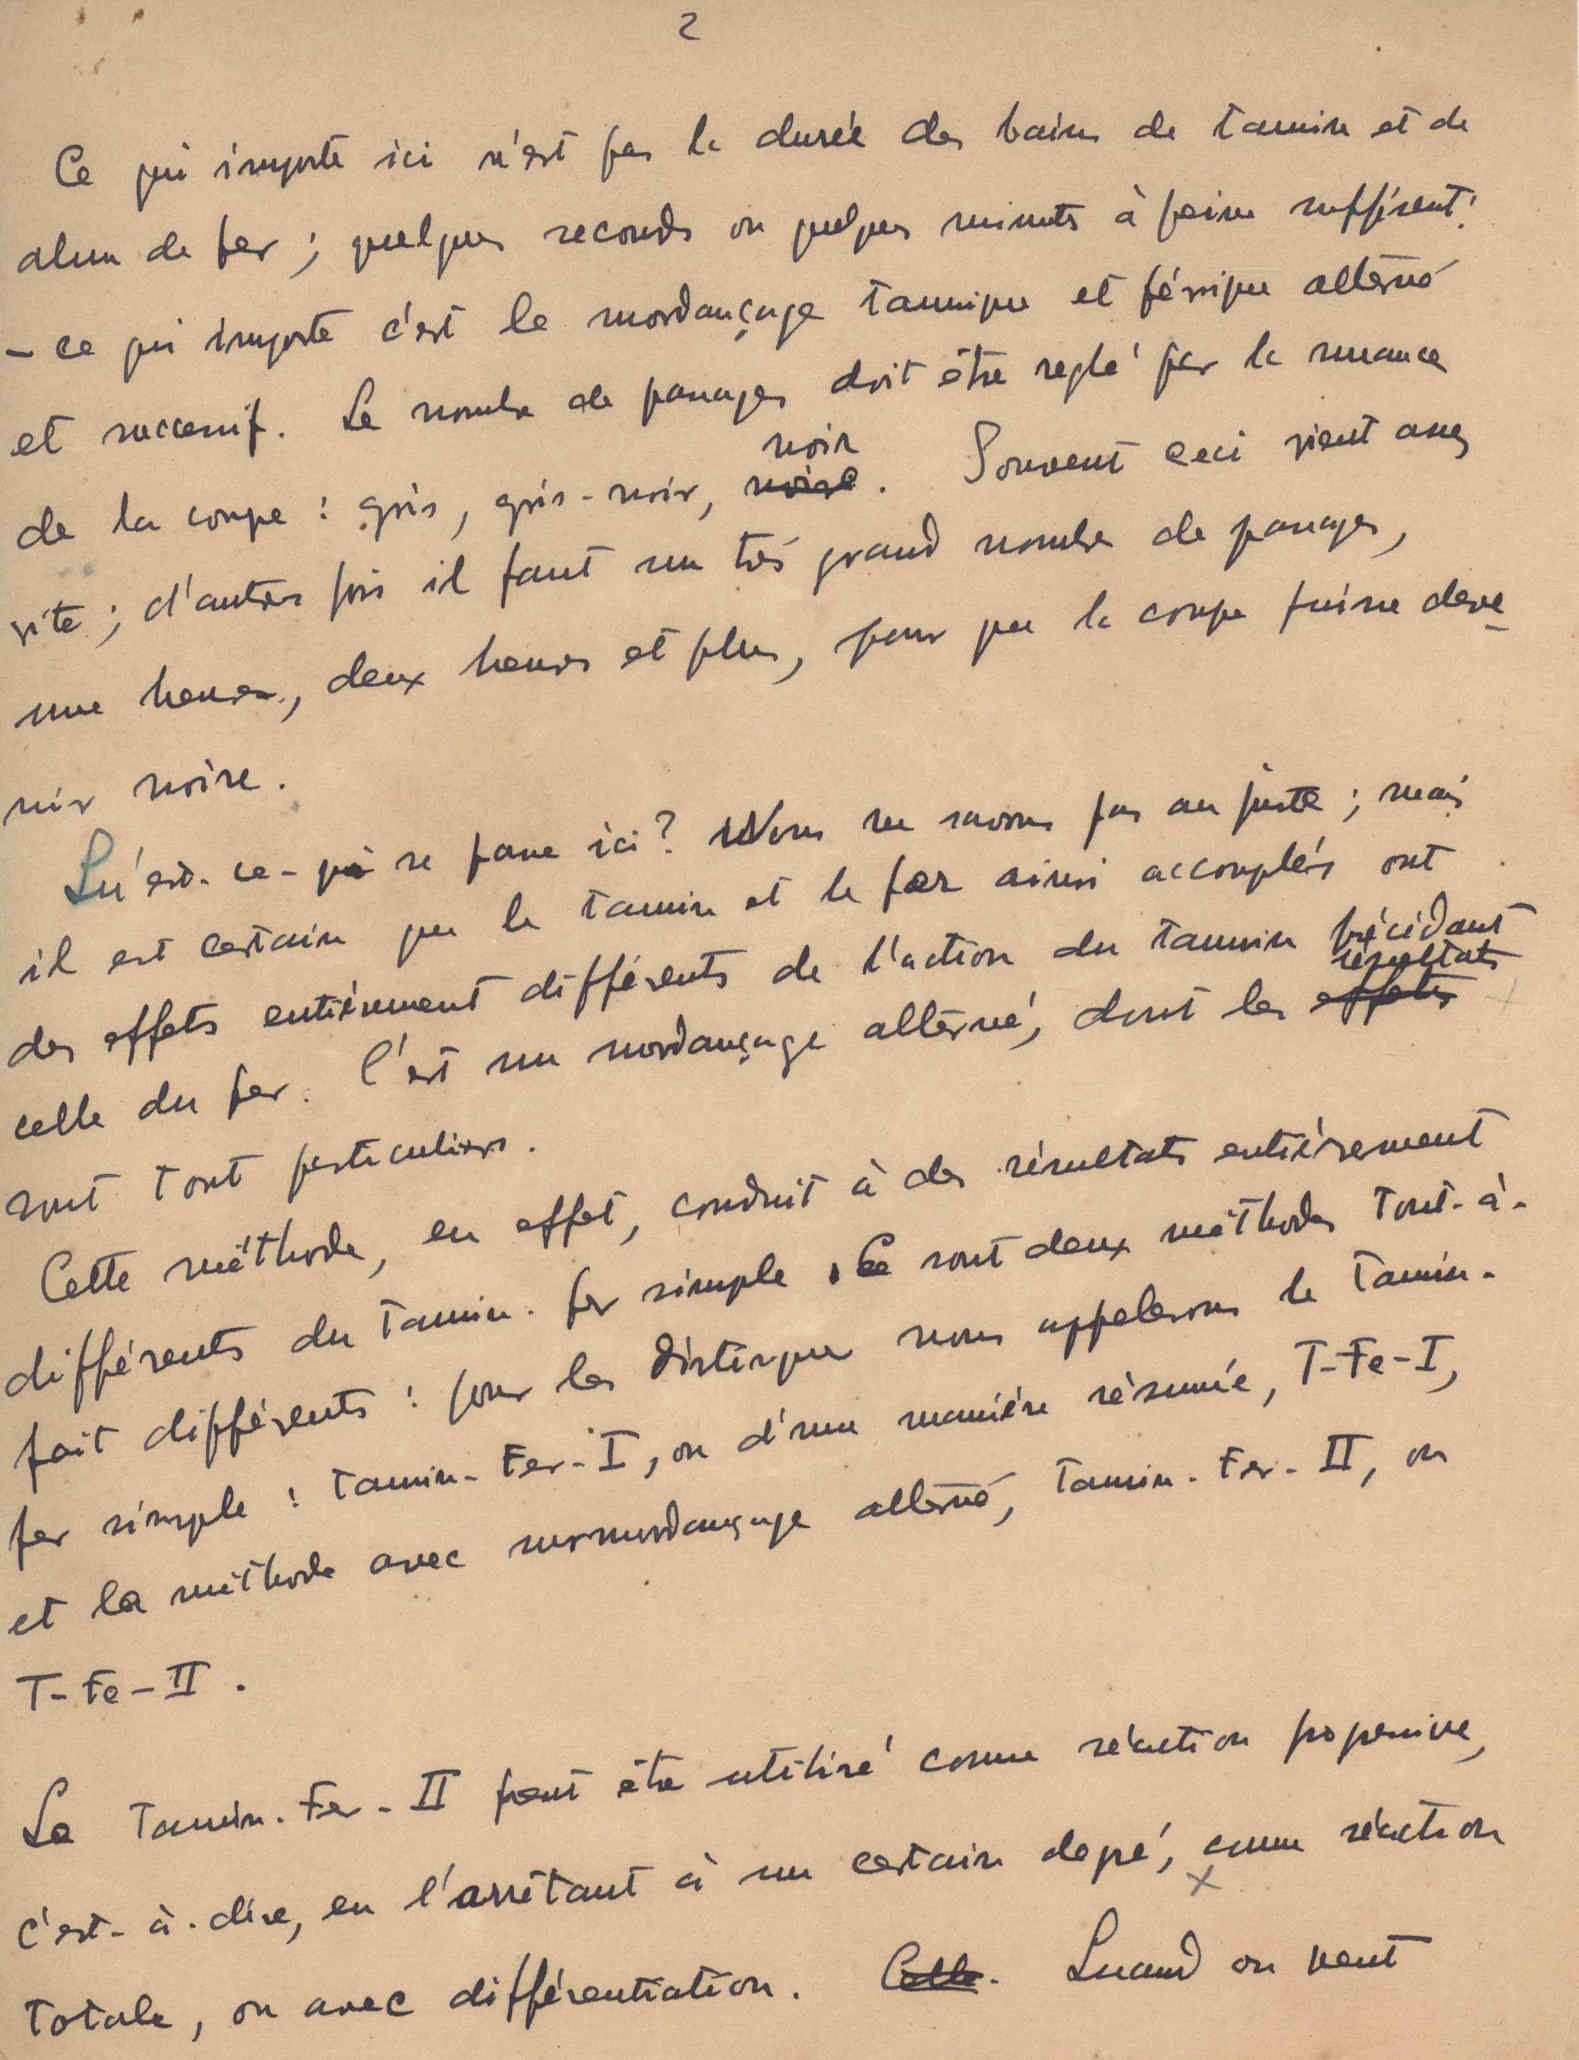 2
Ce qui importe ici n'est pas la durée des bains de tannin et de
alun de fer ; quelques seconds ou quelques minuts à peine suffisent:
- ce qui importe c'est le mordançage tannique et férrique alterné
et successif. Le nombre de passages doit être reglé par la nuance
noir
de la coupe : gris, gris-noir, noire. Souvent ceci vient assez
vite ; d'autres fois il faut un très grand nombre de passages,
une heure, deux heures et plus, pour que la coupe puisse deve
nir noire.
Qu'est-ce-qui se passe ici? Nous ne savons pas au juste ; mais
il est certain que le tannin et le fer ainsi accouplés ont
des effets entièrement différents de l'action du tannin précédant
résultats
celle du fer. C'est un mordançage alterné, dont les effets
sont tout particuliers.
Cette méthode, en effet, conduit à des résultats entièrement
différents du tannin-fer simple. Ce sont deux méthodes tout-à-
fait différents : pour les distinguer nous appelerons le tannin-
fer simple : Tannin-Fer-I, ou d'une manière résumée, T-Fe-I,
et la méthode avec surmordançage alterné, Tannin-Fer-II, ou
T-Fe-II.
Le Tannin-Fer-II peut être utilisé comme réaction progressive,
c'est-à-dire, en l'arrêtant à un certain degré, comme réaction
totale, ou avec différentiation. Celle. Quand on veut